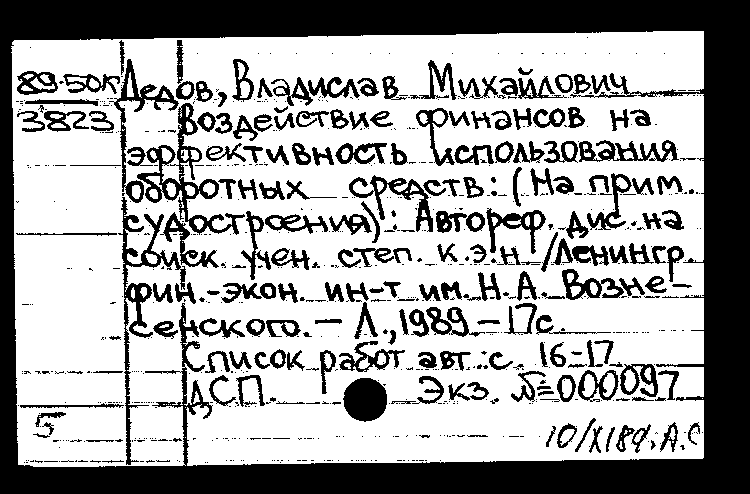 89-50К Дедов, Владислав Михайлович
3823 Воздействие финансов на
эффективность использования
оборотных средств: (На прим.
судостроения): Автореф. дис. на
соиск. учен. степ. к.э.н /Ленингр.
фин.-экон. ин-т им. Н.А. Возне-
сенского. — Л., 1989. — 17с.
Список работ авт.: с. 16-17
ДСП. Экз. №000097
5
10/XI89. А.С